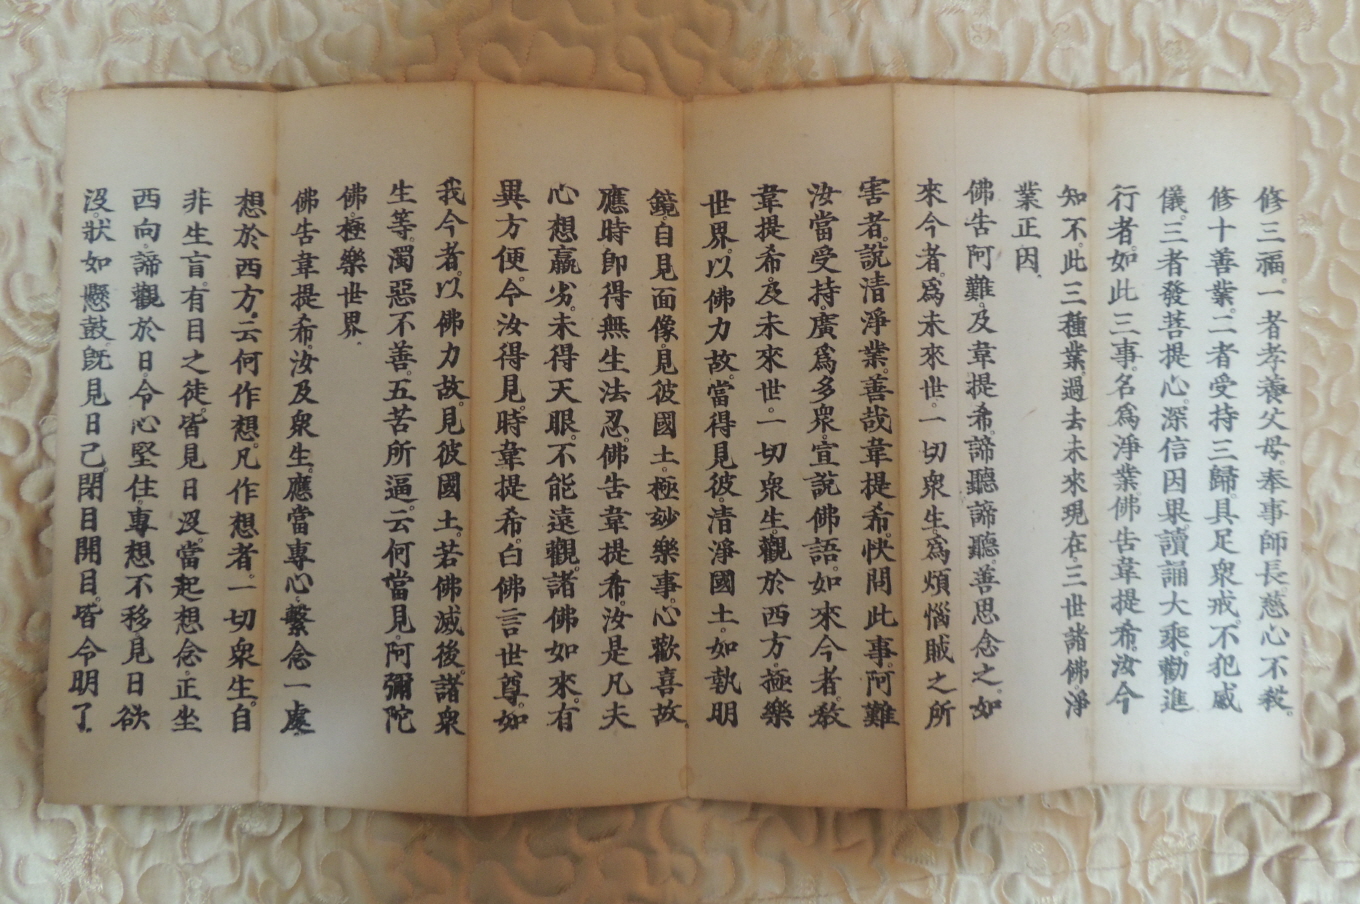 修三福。一者孝養父母。奉事師長。慈心不殺。
修十善業。二者受持三歸。具足衆戒。不犯威
儀。三者發菩提心。深信因果。讀誦大乘。勸進
行者。如此三事。名爲淨業。佛告韋提希。汝今
知不。此三種業。過去未來現在。三世諸佛。淨
業正因。
佛告阿難。及韋提希。諦聽諦聽。善思念之。如
來今者。爲未來世。一切衆生。爲煩惱賊之所
害者。說清淨業。善哉韋提希。快問此事。阿難
汝當受持。廣爲多衆。宣說佛語。如來今者。教
韋提希。及未來世。一切衆生。觀於西方。極樂
世界。以佛力故。當得見彼。清淨國土。如執明
鏡。自見面像。見彼國土。極玅樂事。心歡喜故。
應時即得無生法忍。佛告韋提希。汝是凡夫
心想羸劣。未得天眼。不能遠觀。諸佛如來。有
異方便。令汝得見。時韋提希。白佛言世尊。如
我今者。以佛力故。見彼國土。若佛滅後。諸衆
生等。濁惡不善。五苦所逼。云何當見。阿彌陀
佛。極樂世界。
佛告韋提希。汝及衆生。應當專心。繫念一處
想於西方。云何作想。凡作想者。一切衆生。自
非生盲。有目之徒。皆見日沒。當起想念。正坐
西向。諦觀於日。令心堅住。專想不移。見日欲
沒。狀如懸鼓。旣見日已。閉目開目。皆令明了。